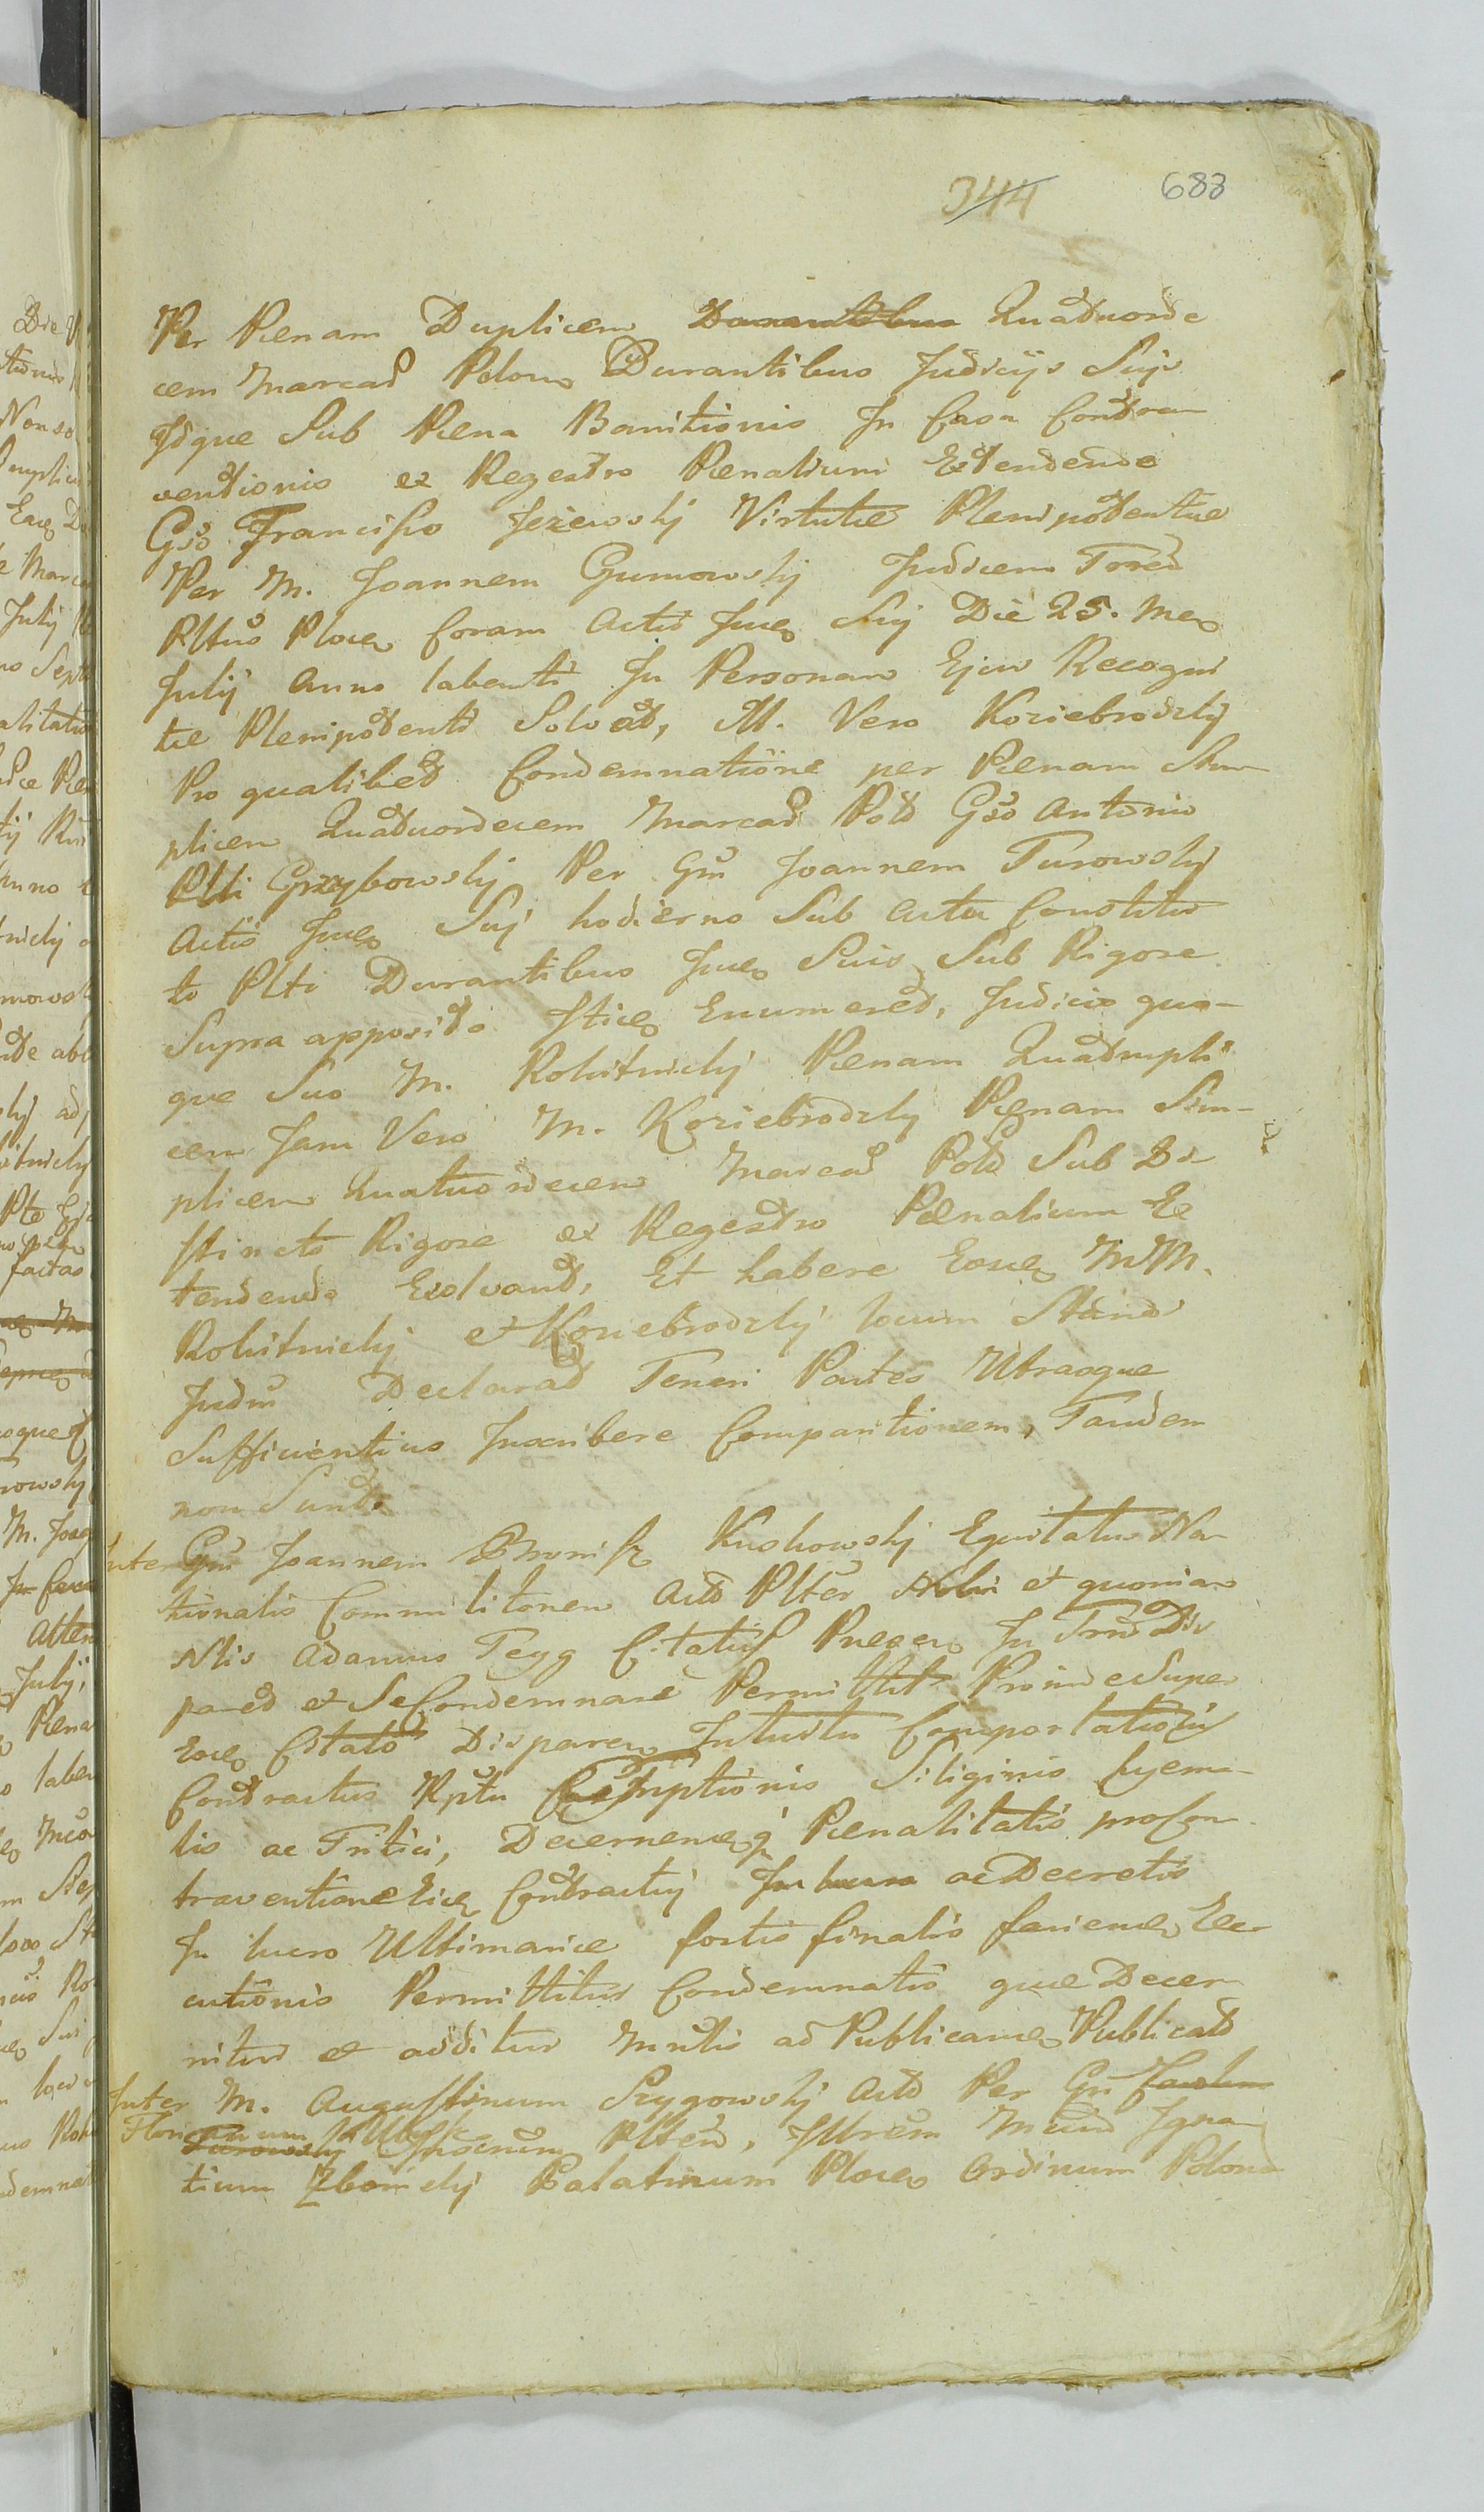 344 683
Per Pœnam Duplicem Durantibus Quatuorde
cem Marcad Polon Durantibus Judicijs Suijs
Idque Sub Pœna Banitionis In Casu Contra
ventionis ex Regestro Pœnalium Extendendo
Gso Francisco Jeżewskj Virtute Plenipotentiæ
Per M. Joannem Gumowskj Judicem Terred
Pltus Ploceñ Coram Actis Juce Suj Die 25. Mea
Julij Anno labenti In Personam Ejus Recogni
tæ Plenipotenti Solvat, M. Vero Koziebrodzky
Pro qualibet Condemnatione per Pœnam Sim
plicem Quatuordecem Marcad Pold Gso Antonio
Plti Grzybowskj Per Gm Joannem Turowskj
Actis Juce Suj hodierno Sub Actu Constitu
to Plti Durantibus Juce Suis Sub Rigore
Supra apposito Itice Enumeret, Judicio quo-
que Suo M. Rokitnickj Pœnam Quadrupli
cem Jam Vero M. Koziebrodzky Pœnam Sim-
plicem Quatuordecem Marcad Pold Sub Di-
stincto Rigore ex Regestro Pœnalium Ex
tendendo Exolvant, Et habere Eosce MM.
Rokitnickj et Koziebrodzkj locum Standi
Judm Declarat Teneri Partes Utrasque
Sufficientius Inscribere Comparitionem, Tandem
non Sunt.
Inter Gm Joannem Kuskowskj Equitatus Na
tionalis Commilitonem Actd Plter et quoniam
Nlis Adamus Tegg Citatus In Trno Dis
paret et Se Condemnare Permittit Proinde Super
Eoce Citato Disparen Intuitu Comportationis
Contractus Rptu Emptionis Siliginis hyema-
lis ac Tritici, Decernence Pœnalitatis pro Con
traventione Eice Contractuj In lucro ac Decretis
In lucro Ultimarice sortis finalis facience Exe
cutionis Permittitur Condemnatio quæ Decer
nitur et additur Mntis ad Publicance Publicatd
Inter M. Augustinum Szygowskj Actd Per Gm
Florianum Plted, Illrem Mcum Igna
tium Zboinskj Palatinum Ploceñ Ordinum Polond